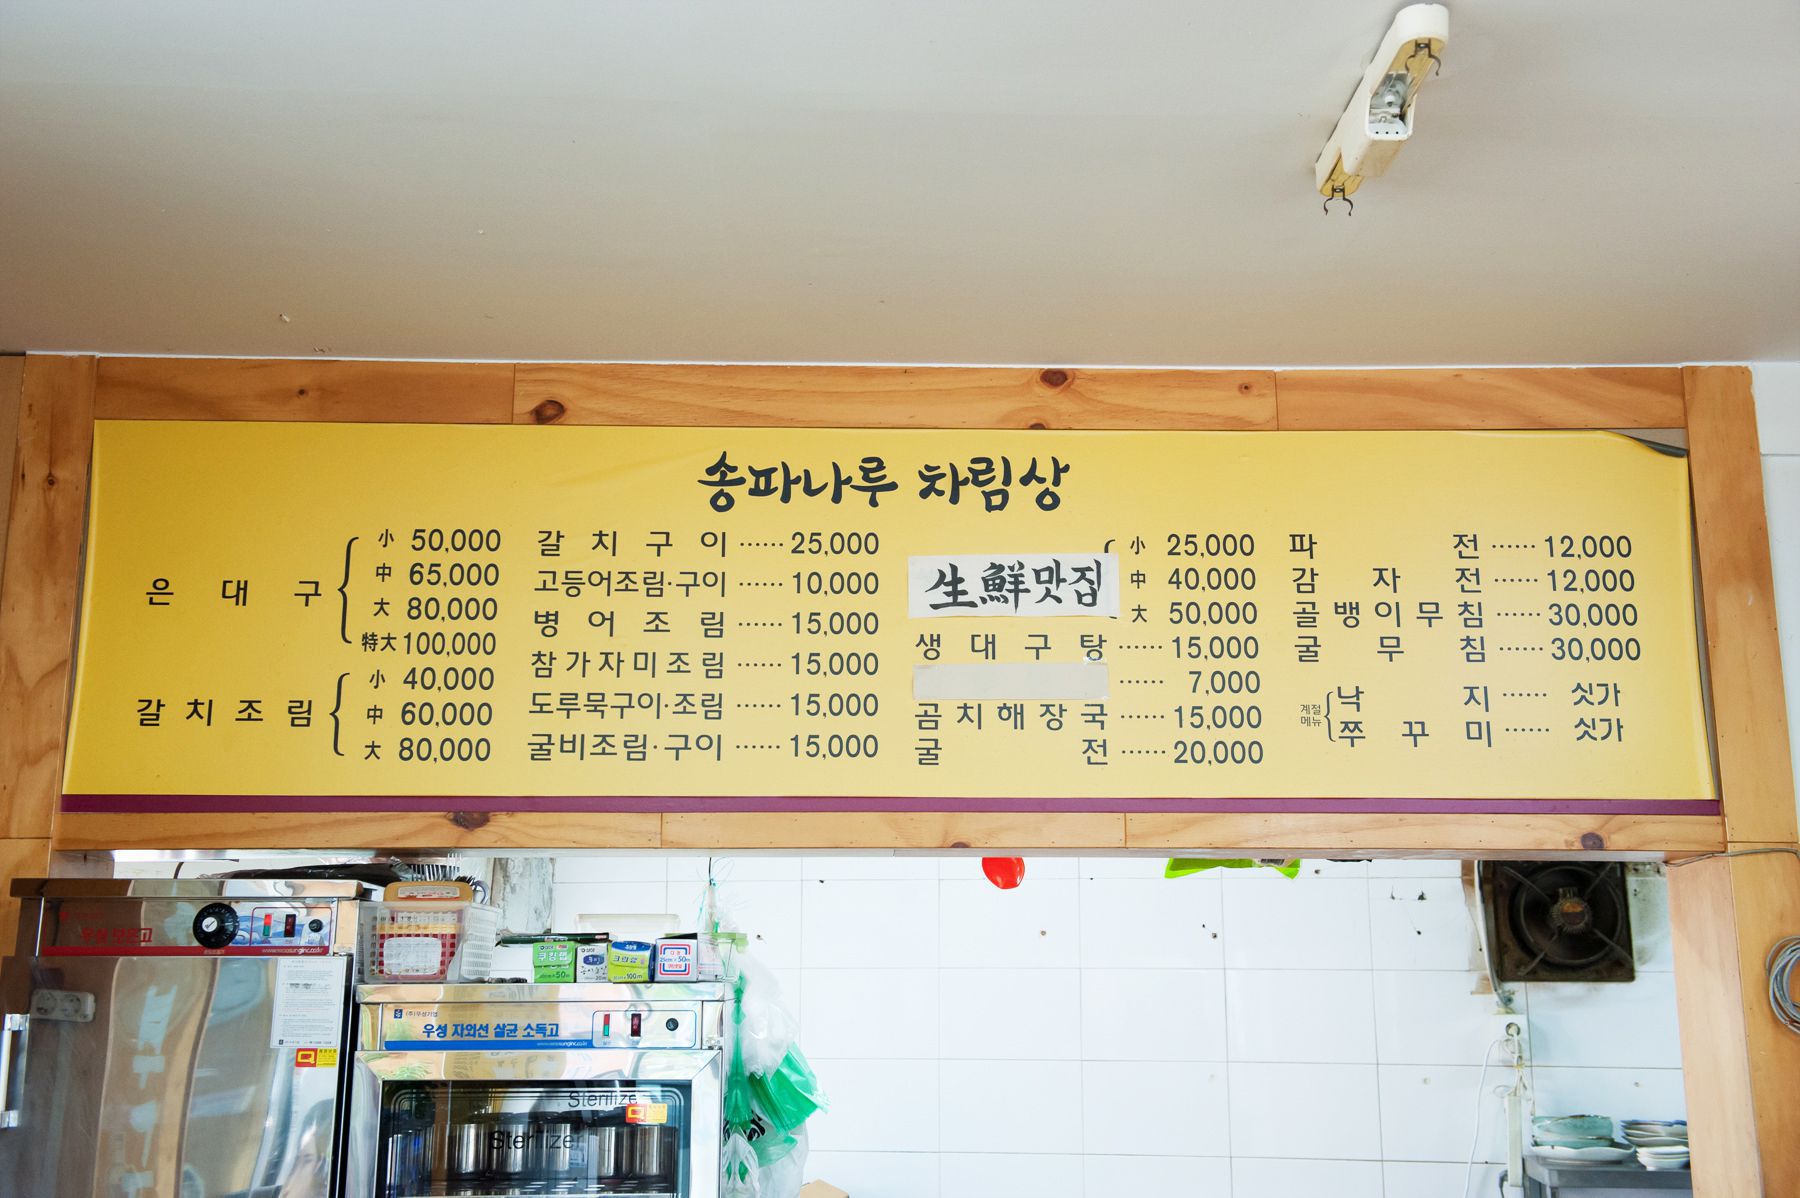 송파나루 차림상
은대구
小 50,000
中 65,000
大 80,000
特大 100,000
갈치조림
小 40,000
中 60,000
大 80,000
갈치구이 ······ 25,000
고등어조림·구이 ······ 10,000
병어조림 ······ 15,000
참가자미조림 ······ 15,000
도루묵구이·조림 ······ 15,000
굴비조림·구이 ······ 15,000
生鮮맛집
小 25,000
中 40,000
大 50,000
생대구탕 ······ 15,000
······ 7,000
곰치해장국 ······ 15,000
굴전 ······ 20,000
파전 ······ 12,000
감자전 ······ 12,000
골뱅이무침 ······ 30,000
굴무침 ······ 30,000
계절
메뉴
낙지 ······ 싯가
쭈꾸미 ······ 싯가
(주)우성기업
우성 자외선 살균 소독고
Sterilizer
Sterilizer
쿠킹랩
크린랩